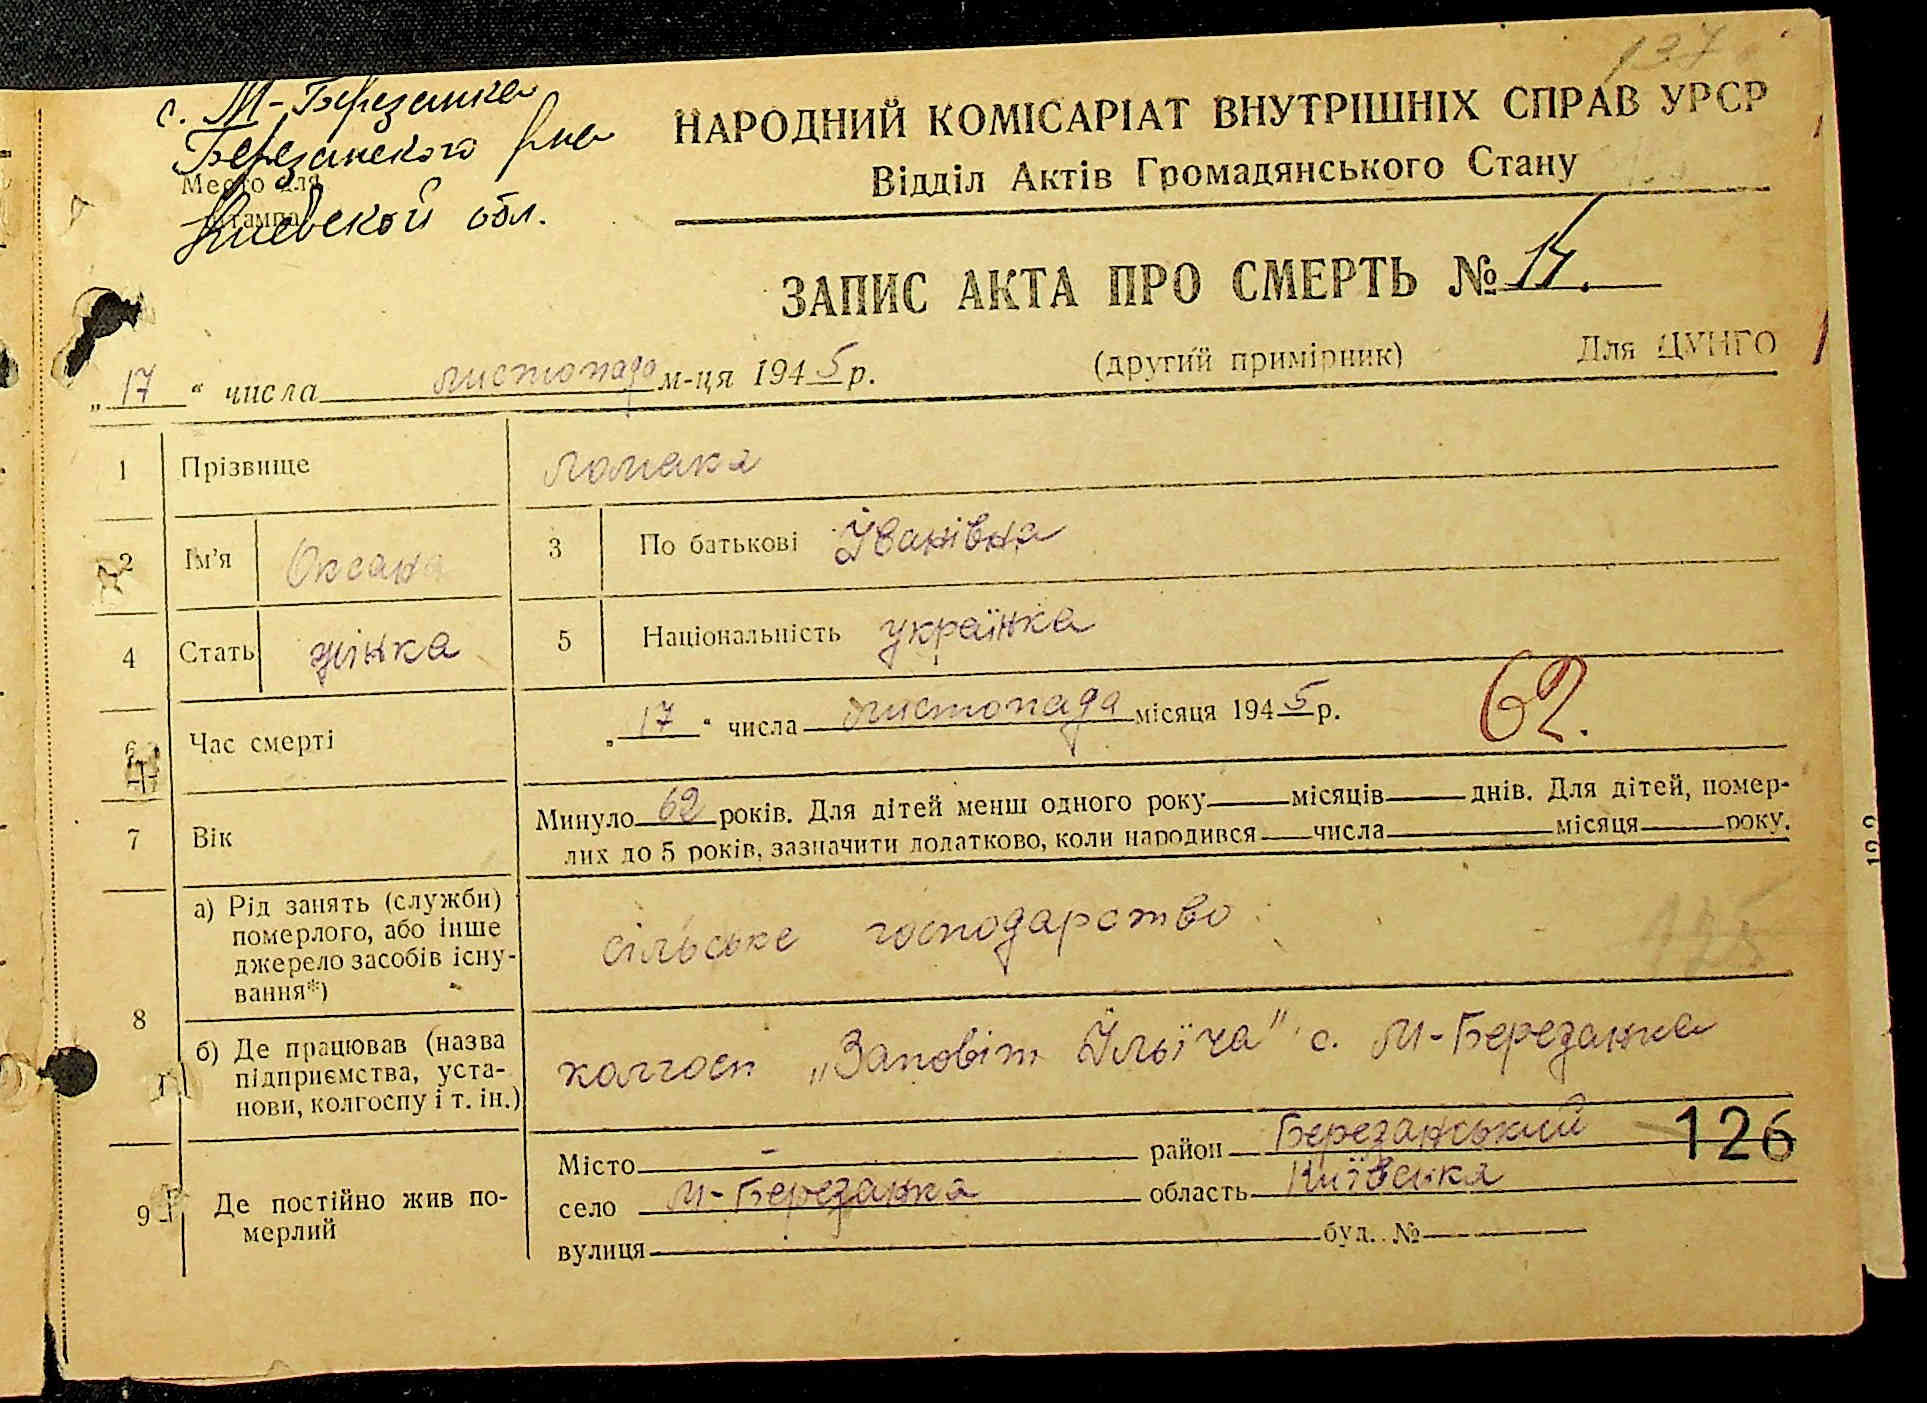 137
с. М-Березанка
Березанского р-на
Место для
штампа
Киевской обл.
НАРОДНИЙ КОМІСАРІАТ ВНУТРІШНІХ СПРАВ УРСР
Відділ Актів Громадянського Стану
ЗАПИС АКТА ПРО СМЕРТЬ № 14.
„17" числа листопада м-ця 1945 р. (другий примірник) Для ЦУНГО
1 Прізвище Ломака
2 Ім'я Оксана 3 По батькові Іванівна
4 Стать жінка 5 Національність українка
6 Час смерті „17" числа листопада місяця 1945 р.
62.
7 Вік Минуло 62 років. Для дітей менш одного року — місяців — днів. Для дітей, помер-
лих до 5 років, зазначити додатково, коли народився — числа — місяця — року.
8 а) Рід занять (служби)
померлого, або інше
джерело засобів існу-
вання*)
сільське господарство
125
б) Де працював (назва
підприємства, уста-
нови, колгоспу і т. ін.)
колгосп „Заповіт Ілліча" с. М-Березанка
126
9 Де постійно жив по-
мерлий
Місто - район Березанський
село М-Березанка область Київська
вулиця буд. №